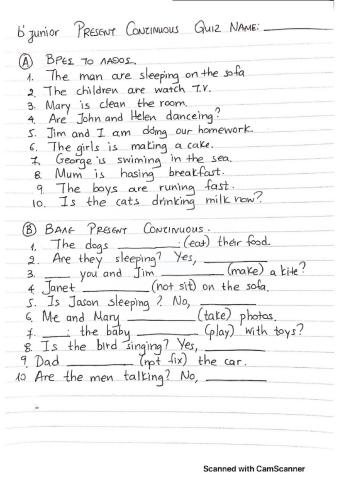 b' junior PRESENT CONTINUOUS QUIZ NAME: ________
Ⓐ ΒΡΕΣ ΤΟ ΛΑΘΟΣ.
1. The man are sleeping on the sofa
2. The children are watch T.V.
3. Mary is clean the room.
4. Are John and Helen danceing?
5. Jim and I am doing our homework.
6. The girls is making a cake.
7. George is swiming in the sea.
8. Mum is hasing breakfast.
9. The boys are runing fast.
10. Is the cats drinking milk now?
Ⓑ ΒΑΛΕ PRESENT CONTINUOUS.
1. The dogs ________ (eat) their food.
2. Are they sleeping? Yes, ________
3. ____ you and Jim ________ (make) a kite?
4. Janet ________ (not sit) on the sofa.
5. Is Jason sleeping? No, ________
6. Me and Mary ________ (take) photos.
7. ____ the baby ________ (play) with toys?
8. Is the bird singing? Yes, ________
9. Dad ________ (not fix) the car.
10 Are the men talking? No, ________
Scanned with CamScanner